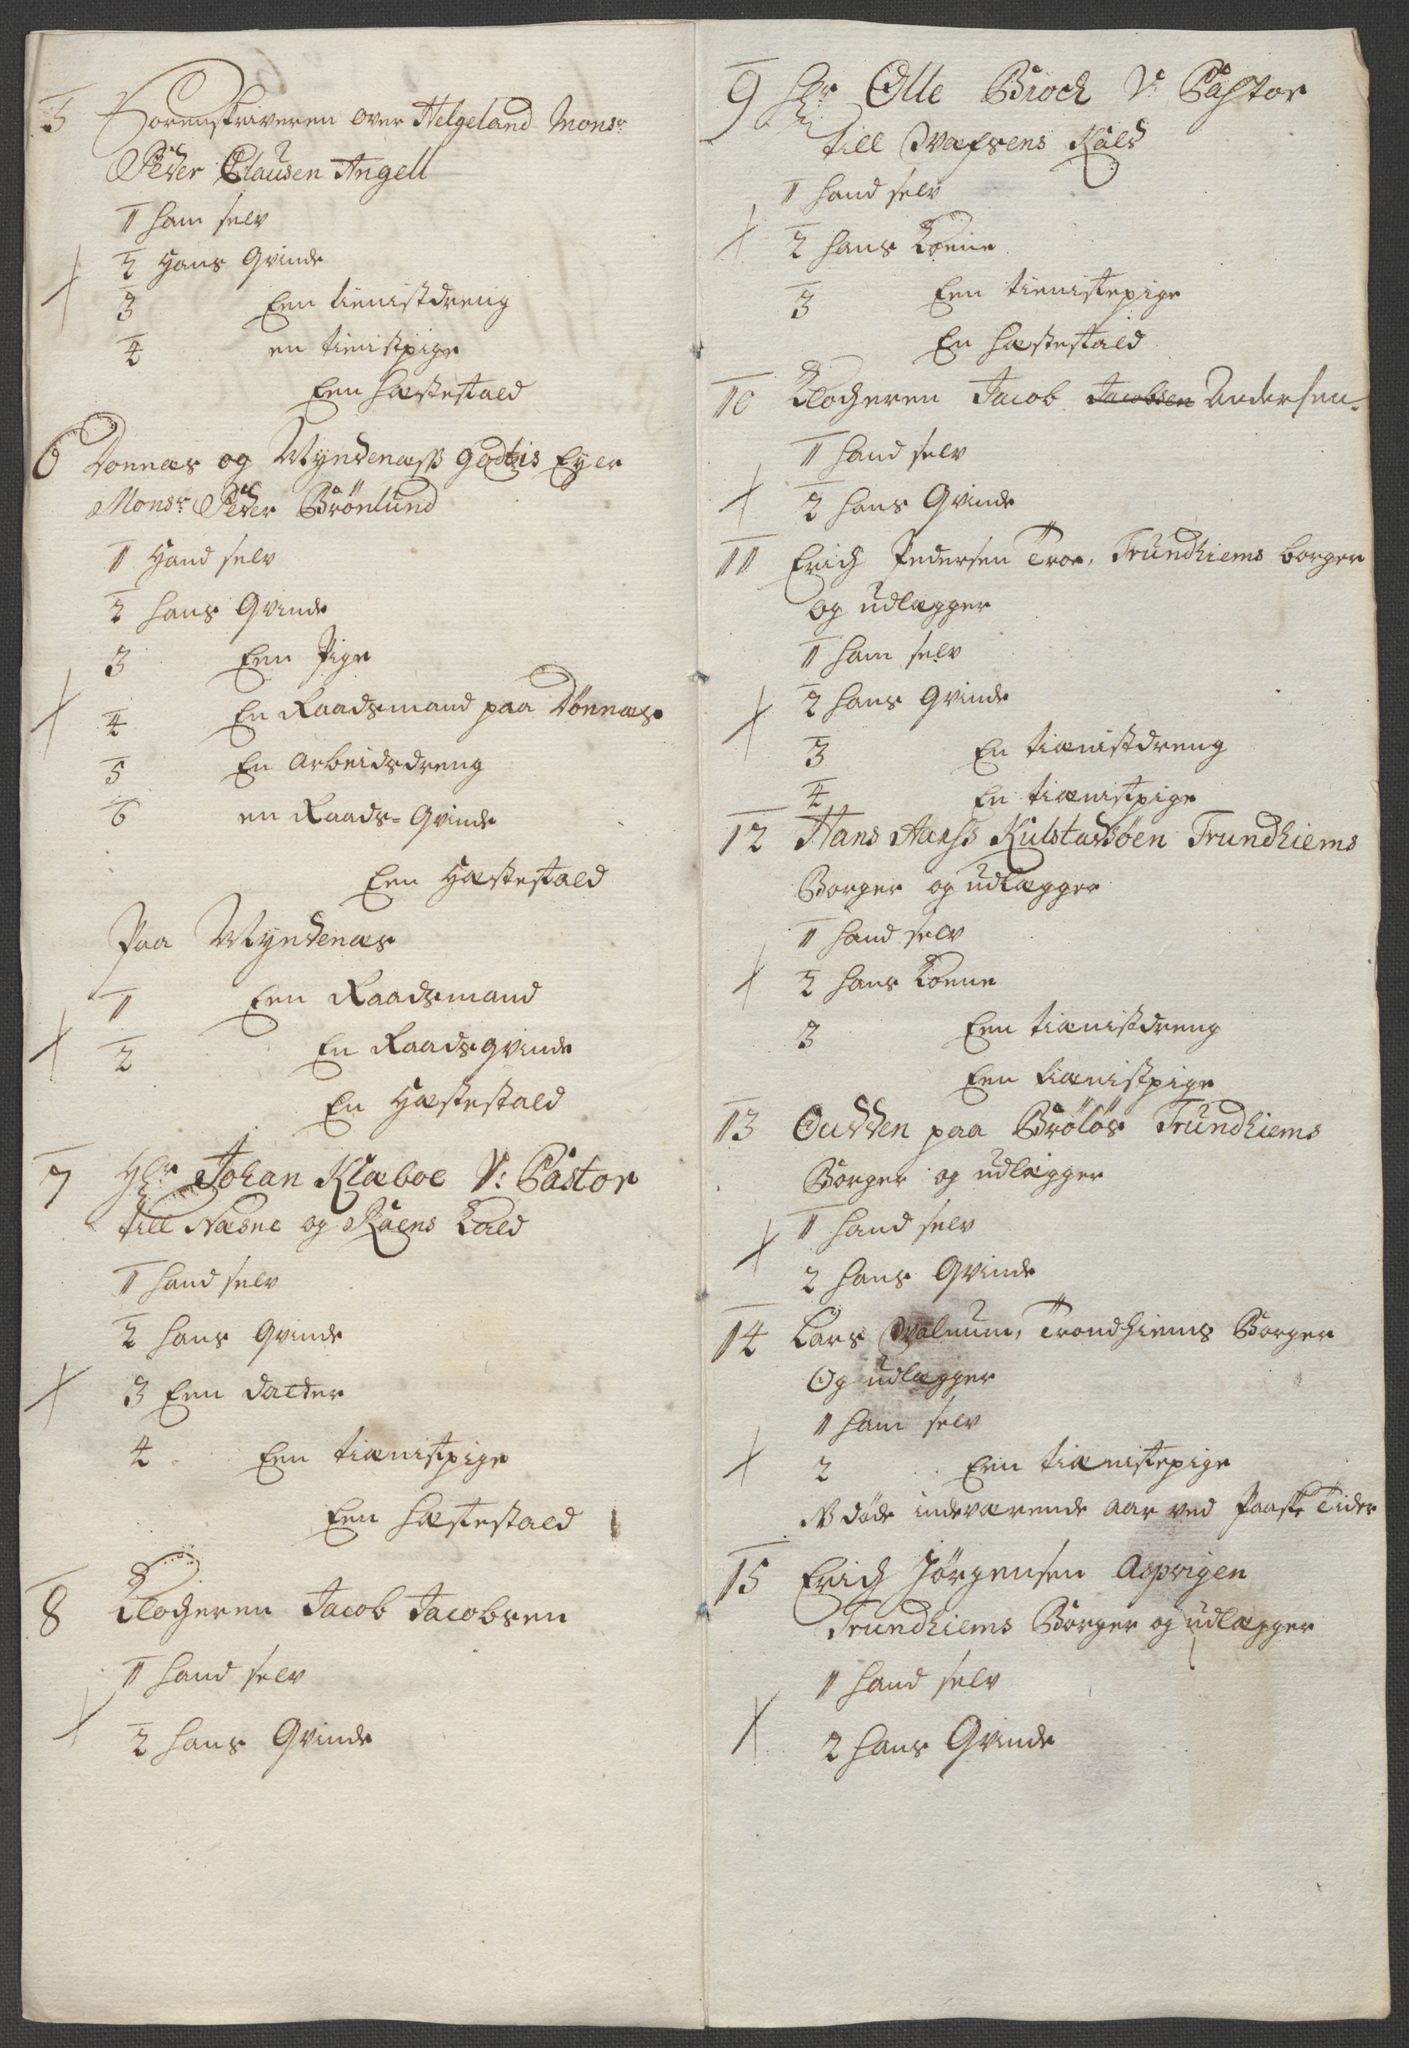 5 Sorenskriveren over Helgeland Monsr
Peder Clausen Angell
1 Ham selv
2 Hans Qvinde
3 Een tienistdreng
4 en tienistpige
Een Hæstestald
6 Donnæs og Myndenæss godtis Eyer
Monsr Peder Brönlund
1 Hand selv
2 Hans Qvinde
3 Een Pige
4 En Raadsmand paa Dönnæs
5 En Arbeidsdreng
6 en Raads= Qvinde
Een Hæstestald
Paa Myndenæs
1 Een Raadsmand
2 En Raadsqvinde
En Hæstestald
7 Hr Johan Klæboe V: Pastor
till Næsne og Raens Kald
1 Hand selv
2 Hans Qvinde
3 Een datter
4 Een tiænistpige
Een Hæstestald
8 Klocheren Jacob Jacobsen
1 Hand selv
2 Hans Qvinde
9 Hr Olle Broch V: Pastor
till Wæfsens Kald
1 Hand selv
2 Hans Kone
3 Een tienistepige
En Hæstestald
10 Klocheren Jacob Jacobsen Andersen
1 Hand selv
2 Hans Qvinde
11 Erich Pedersen Troe, Trundhiems borger
og udlægger
1 Ham selv
2 Hans Qvinde
3 En tiænistdreng
4 En tiænistpige
12 Hans Hanss Kulstadsöen Trundhiems
Borger og udlægger
1 Hand selv
2 Hans Kone
3 Een tiænistdreng
Een tiænistpige
13 Oudden paa Brölös Trundhiems
Borger og udlægger
1 Hand selv
2 Hans Qvinde
14 Lars Walnum, Trondhiems Borger
Og udlægger
1 Ham selv
2 Een tiænistepige
N döde indeværende aar ved Paaske Tider
15 Erich Jörgensen Aspvigen
Trundhiems Borger og udlægger
1 Hand selv
2 Hans Qvinde